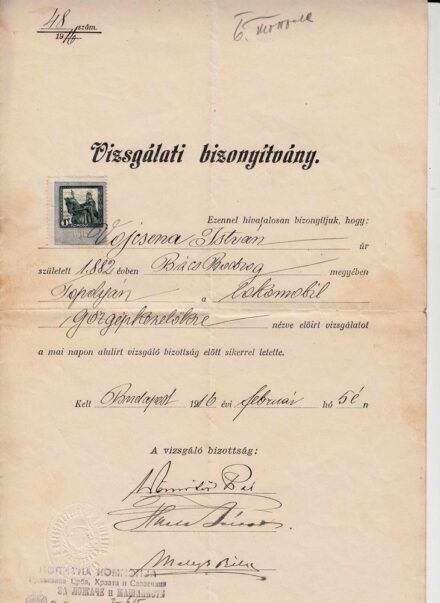 48 szám.
1916
Vizsgálati bizonyítvány.
Ezennel hivatalosan bizonyítjuk, hogy:
Vojcsena István úr
született 1.882 évben Bács Bodrog megyében
Topolyán a Lokomobil
gőzgépkezelőkre nézve előirt vizsgálatot
a mai napon alulirt vizsgáló bizottság előtt sikerrel letette.
Kelt Budapest 1916 évi február hó 5én
A vizsgáló bizottság:
ЗА ЛОЖАЧЕ И МАШИНИСТЕ